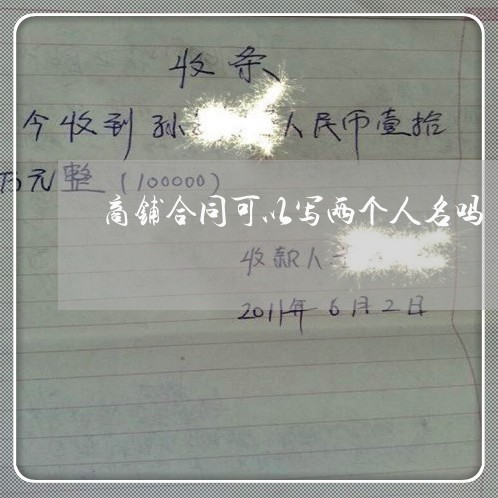 收条
今收到孙人民币壹拾
万元整(100000)
商铺合同可以写两个人名吗
收款人
2011年6月2日